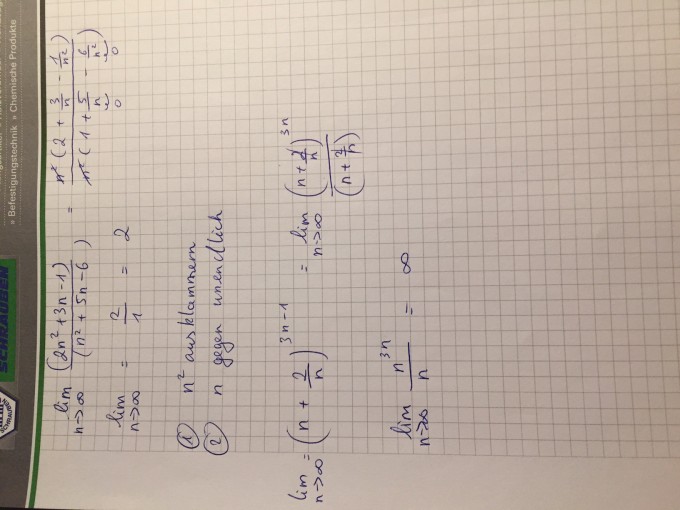 SCHRAUBEN
» Befestigungstechnik » Chemische Produkte
lim n→∞ (2n² + 3n - 1) / (n² + 5n - 6) = n² (2 + 3/n - 1/n²) / n² (1 + 5/n - 6/n²)
0 0
lim n→∞ = 2/1 = 2
① n² ausklammern
② n gegen unendlich
lim n→∞ = (n + 2/n)^(3n-1) = lim n→∞ (n + 2/n)^(3n) / (n + 2/n)
lim n→∞ n^(3n) / n = ∞